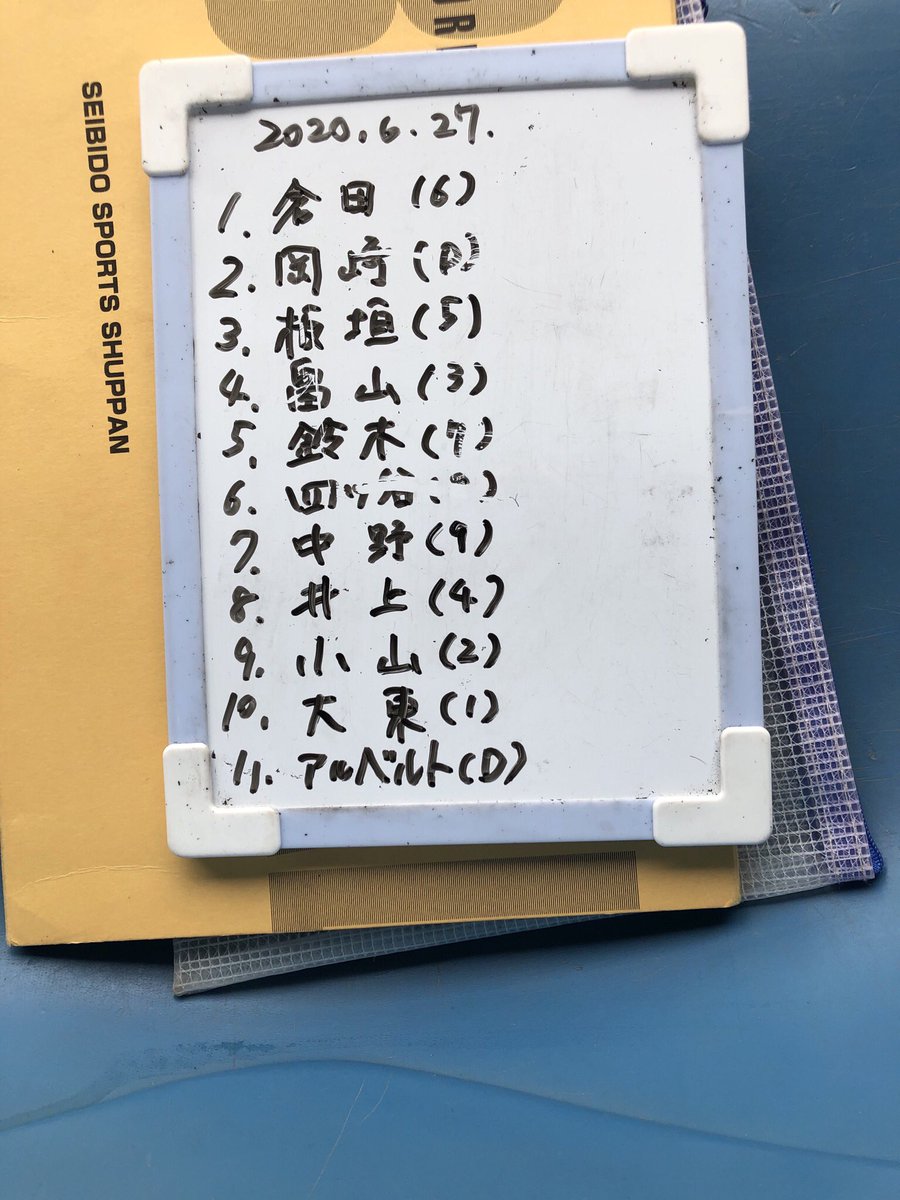 URI
SEIBIDO SPORTS SHUPPAN
2020.6.27.
1. 倉田(6)
2. 岡崎(D)
3. 板垣(5)
4. 畠山(3)
5. 鈴木(7)
6. 四ツ谷
7. 中野(9)
8. 井上(4)
9. 小山(2)
10. 大東(1)
11. アルベルト(D)